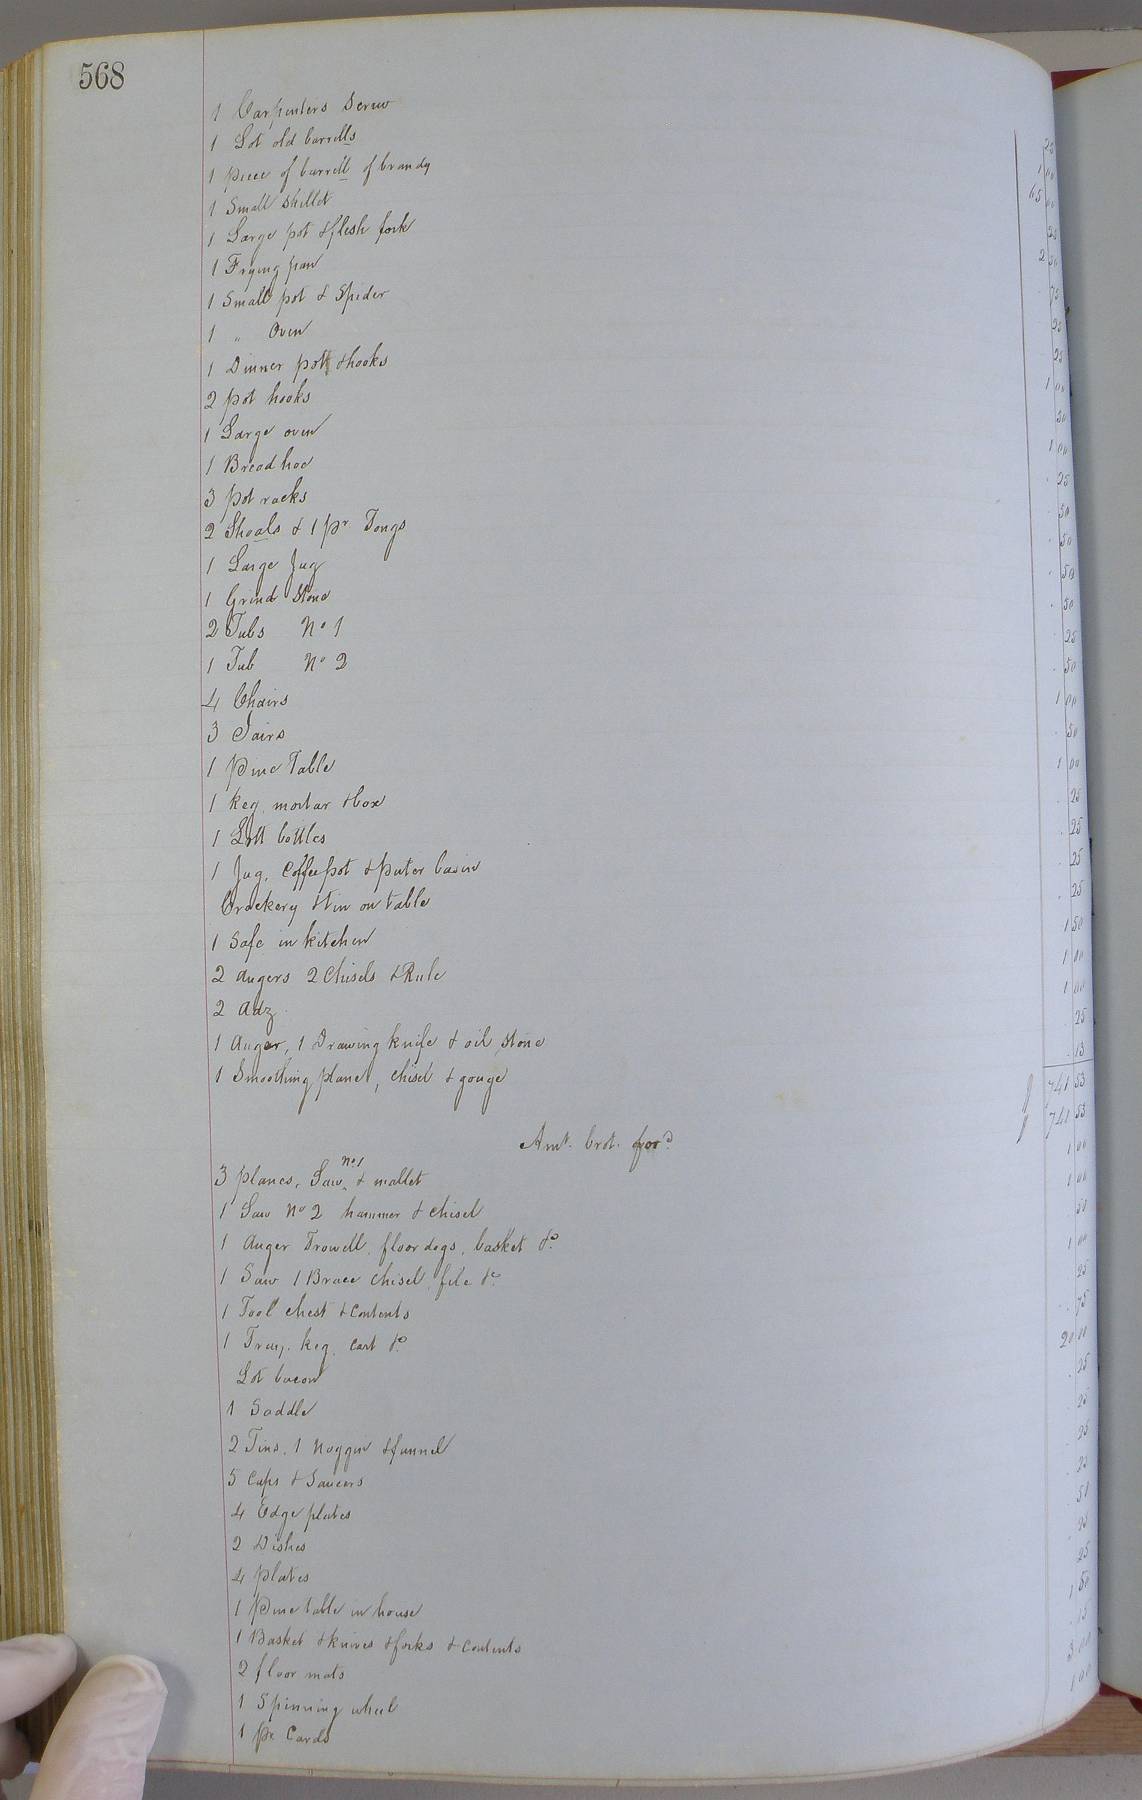 568
1 Carpenters Screw 25
1 Lot old barrells 1 00
1 piece of barrell of brandy 65 00
1 Small Skillet 25
1 Large pot & flesh fork 2 50
1 Frying pan 75
1 Small pot & Spider 25
1 " Oven 25
1 Dinner pot & hooks 1 00
2 pot hooks 50
1 Large oven 1 00
1 Bread hoe 25
3 pot racks 50
2 Shoals & 1 pr Tongs 50
1 Large Jug 50
1 Grind Stone 50
2 Tubs No 1 25
1 Tub No 2 50
4 Chairs 1 00
3 Jairs 50
1 Pine Table 1 00
1 keg, mortar & box 25
1 Lott bottles 25
1 Jug, Coffeepot & puter basin 25
Crockery & tin on table 25
1 Safe in kitchen 1 50
2 augers 2 Chisels & Rule 1 00
2 adz 1 00
1 Auger, 1 Drawing knife & oil stone 25
1 Smoothing plane, chisel & gouge 13
741 53
Amt. brot. ford 741 53
3 planes, Saw No 1 & mallet 1 00
1 Saw No 2 hammer & chisel 1 00
1 Auger Trowell, floor dogs, basket &c 50
1 Saw 1 Brace chisel, file &c 1 00
1 Tool chest & Contents 25
1 Tray, keg, cart &c 75
Lot bacon 20 00
1 Saddle 25
2 Tins, 1 noggin & funnel 25
5 Cups & Saucers 25
4 Edge plates 25
2 Dishes 50
4 plates 25
1 Pine table in house 25
1 Basket & knives & forks & contents 1 50
2 floor mats 15
1 Spinning wheel 3 00
1 pr Cards 1 00